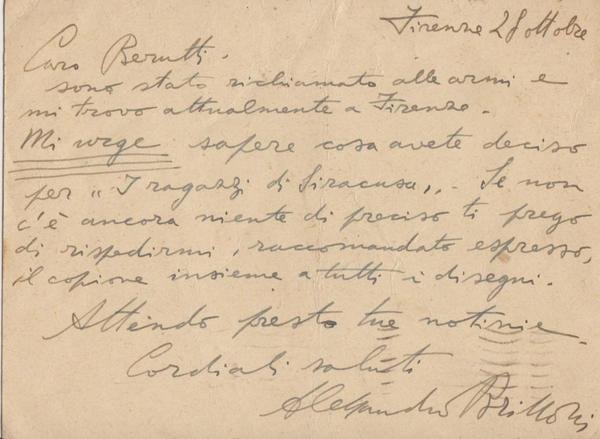 Firenze 28 ottobre
Caro Berutti.
sono stato richiamato alle armi e
mi trovo attualmente a Firenze.
Mi urge sapere cosa avete deciso
per "I ragazzi di Siracusa". Se non
c'è ancora niente di preciso ti prego
di rispedirmi, raccomandato espresso,
il copione insieme a tutti i disegni.
Attendo presto tue notizie.
Cordiali saluti
Alessandro